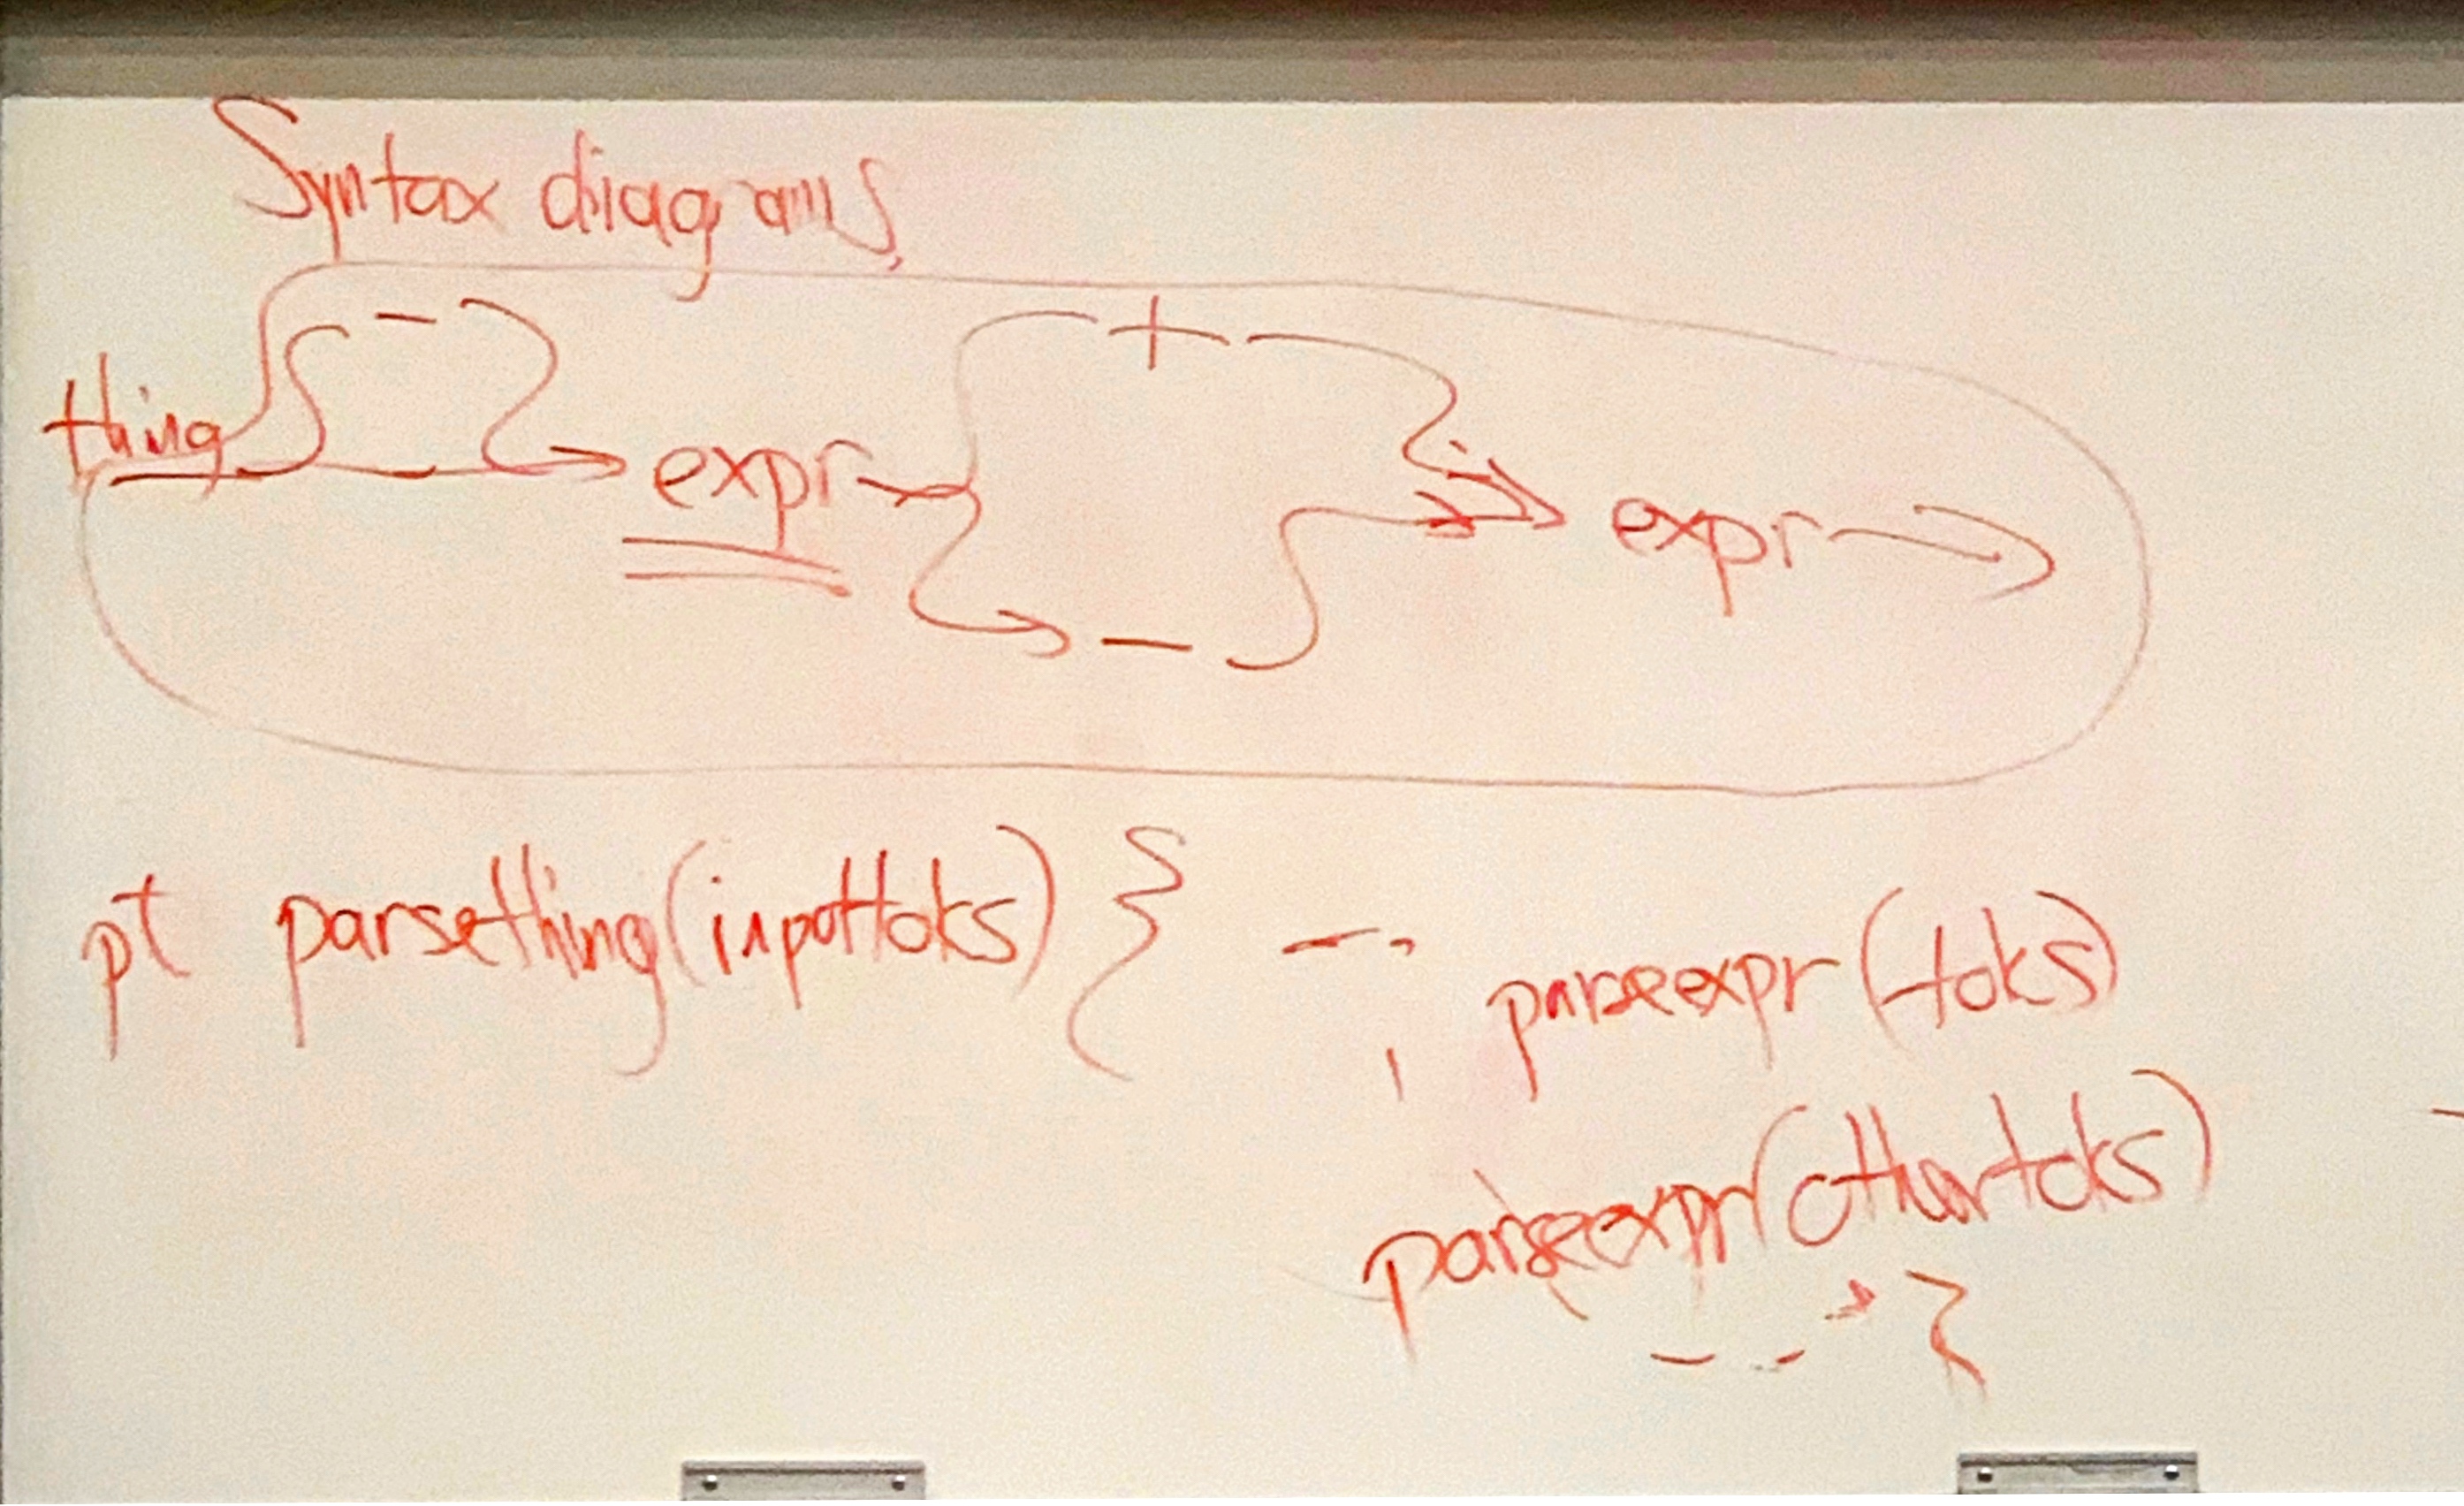 Syntax diagrams
thing - expr + - expr
pt parsething(inputtoks) {
parseexpr(toks)
parseexpr(othertoks)
}